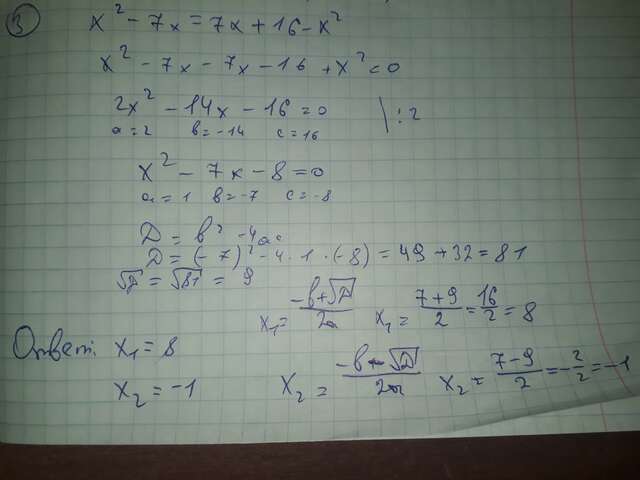 3) x² - 7x = 7x + 16 - x²
x² - 7x - 7x - 16 + x² = 0
2x² - 14x - 16 = 0 | : 2
a = 2 b = -14 c = 16
x² - 7x - 8 = 0
a = 1 b = -7 c = -8
D = b² - 4ac
D = (-7)² - 4 · 1 · (-8) = 49 + 32 = 81
√D = √81 = 9
x₁ = (-b+√D)/2a x₁ = (7+9)/2 = 16/2 = 8
Ответ: x₁ = 8
x₂ = -1 x₂ = (-b-√D)/2a x₂ = (7-9)/2 = -2/2 = -1